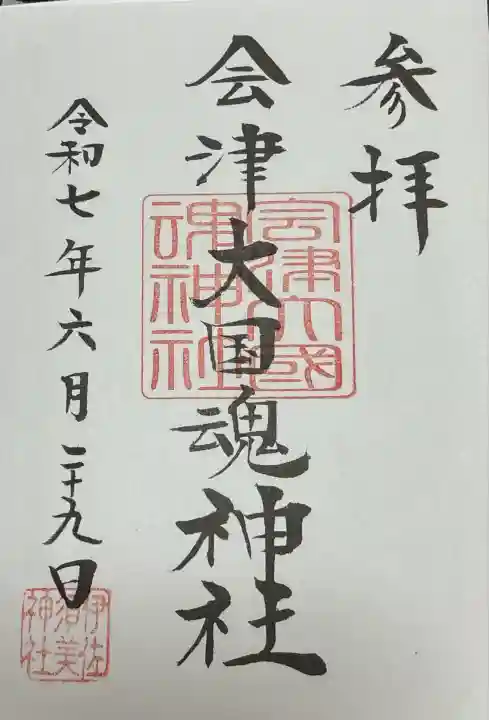 参拝
会津大国魂神社
会津大國魂神社
令和七年六月二十九日
伊佐須美神社